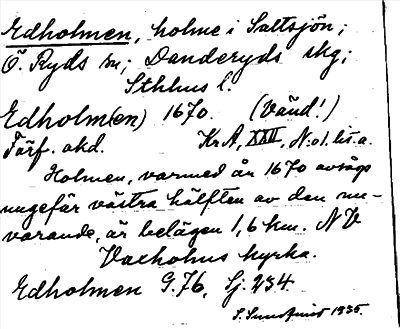 Edholmen, holme i Saltsjön;
Ö. Ryds sn; Danderyds skg;
Sthlms l.
Edholm(en) 1670. (Vänd!)
Förf. akd. Kr A, XXII, N:o 1. lit. a.
Holmen, varmed år 1670 avsågs
ungefär västra hälften av den nu-
varande, är belägen 1,6 km. NV
Vaxholms kyrka.
Edholmen G.76, Sj. 234.
1935.